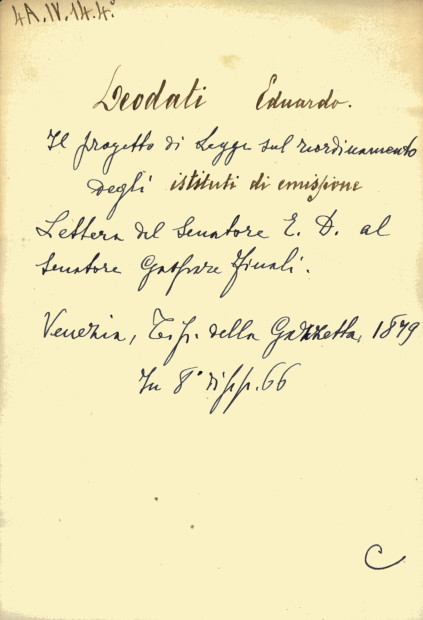 4A.IV.14.4.°
Deodati Eduardo.
Il progetto di Legge sul riordinamento
degli istituti di emissione
Lettera del Senatore E. D. al
Senatore Gaspare Finali.
Venezia, Tip. della Gazzetta, 1879
In 8° di pp. 66
C